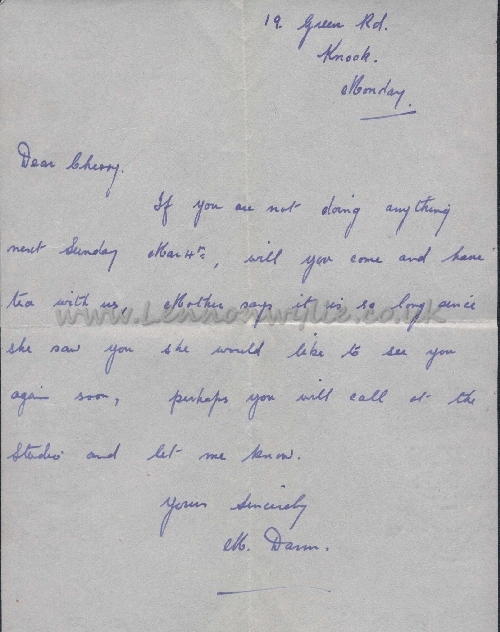 19 Green Rd.
Knock.
Monday.
Dear Cherry.
If you are not doing anything
next Sunday Mar 4th, will you come and have
tea with us, Mother says it is so long since
www.Lennonwylie.co.uk
she saw you she would like to see you
again soon, perhaps you will call at the
Studio and let me know.
Yours Sincerely
M.